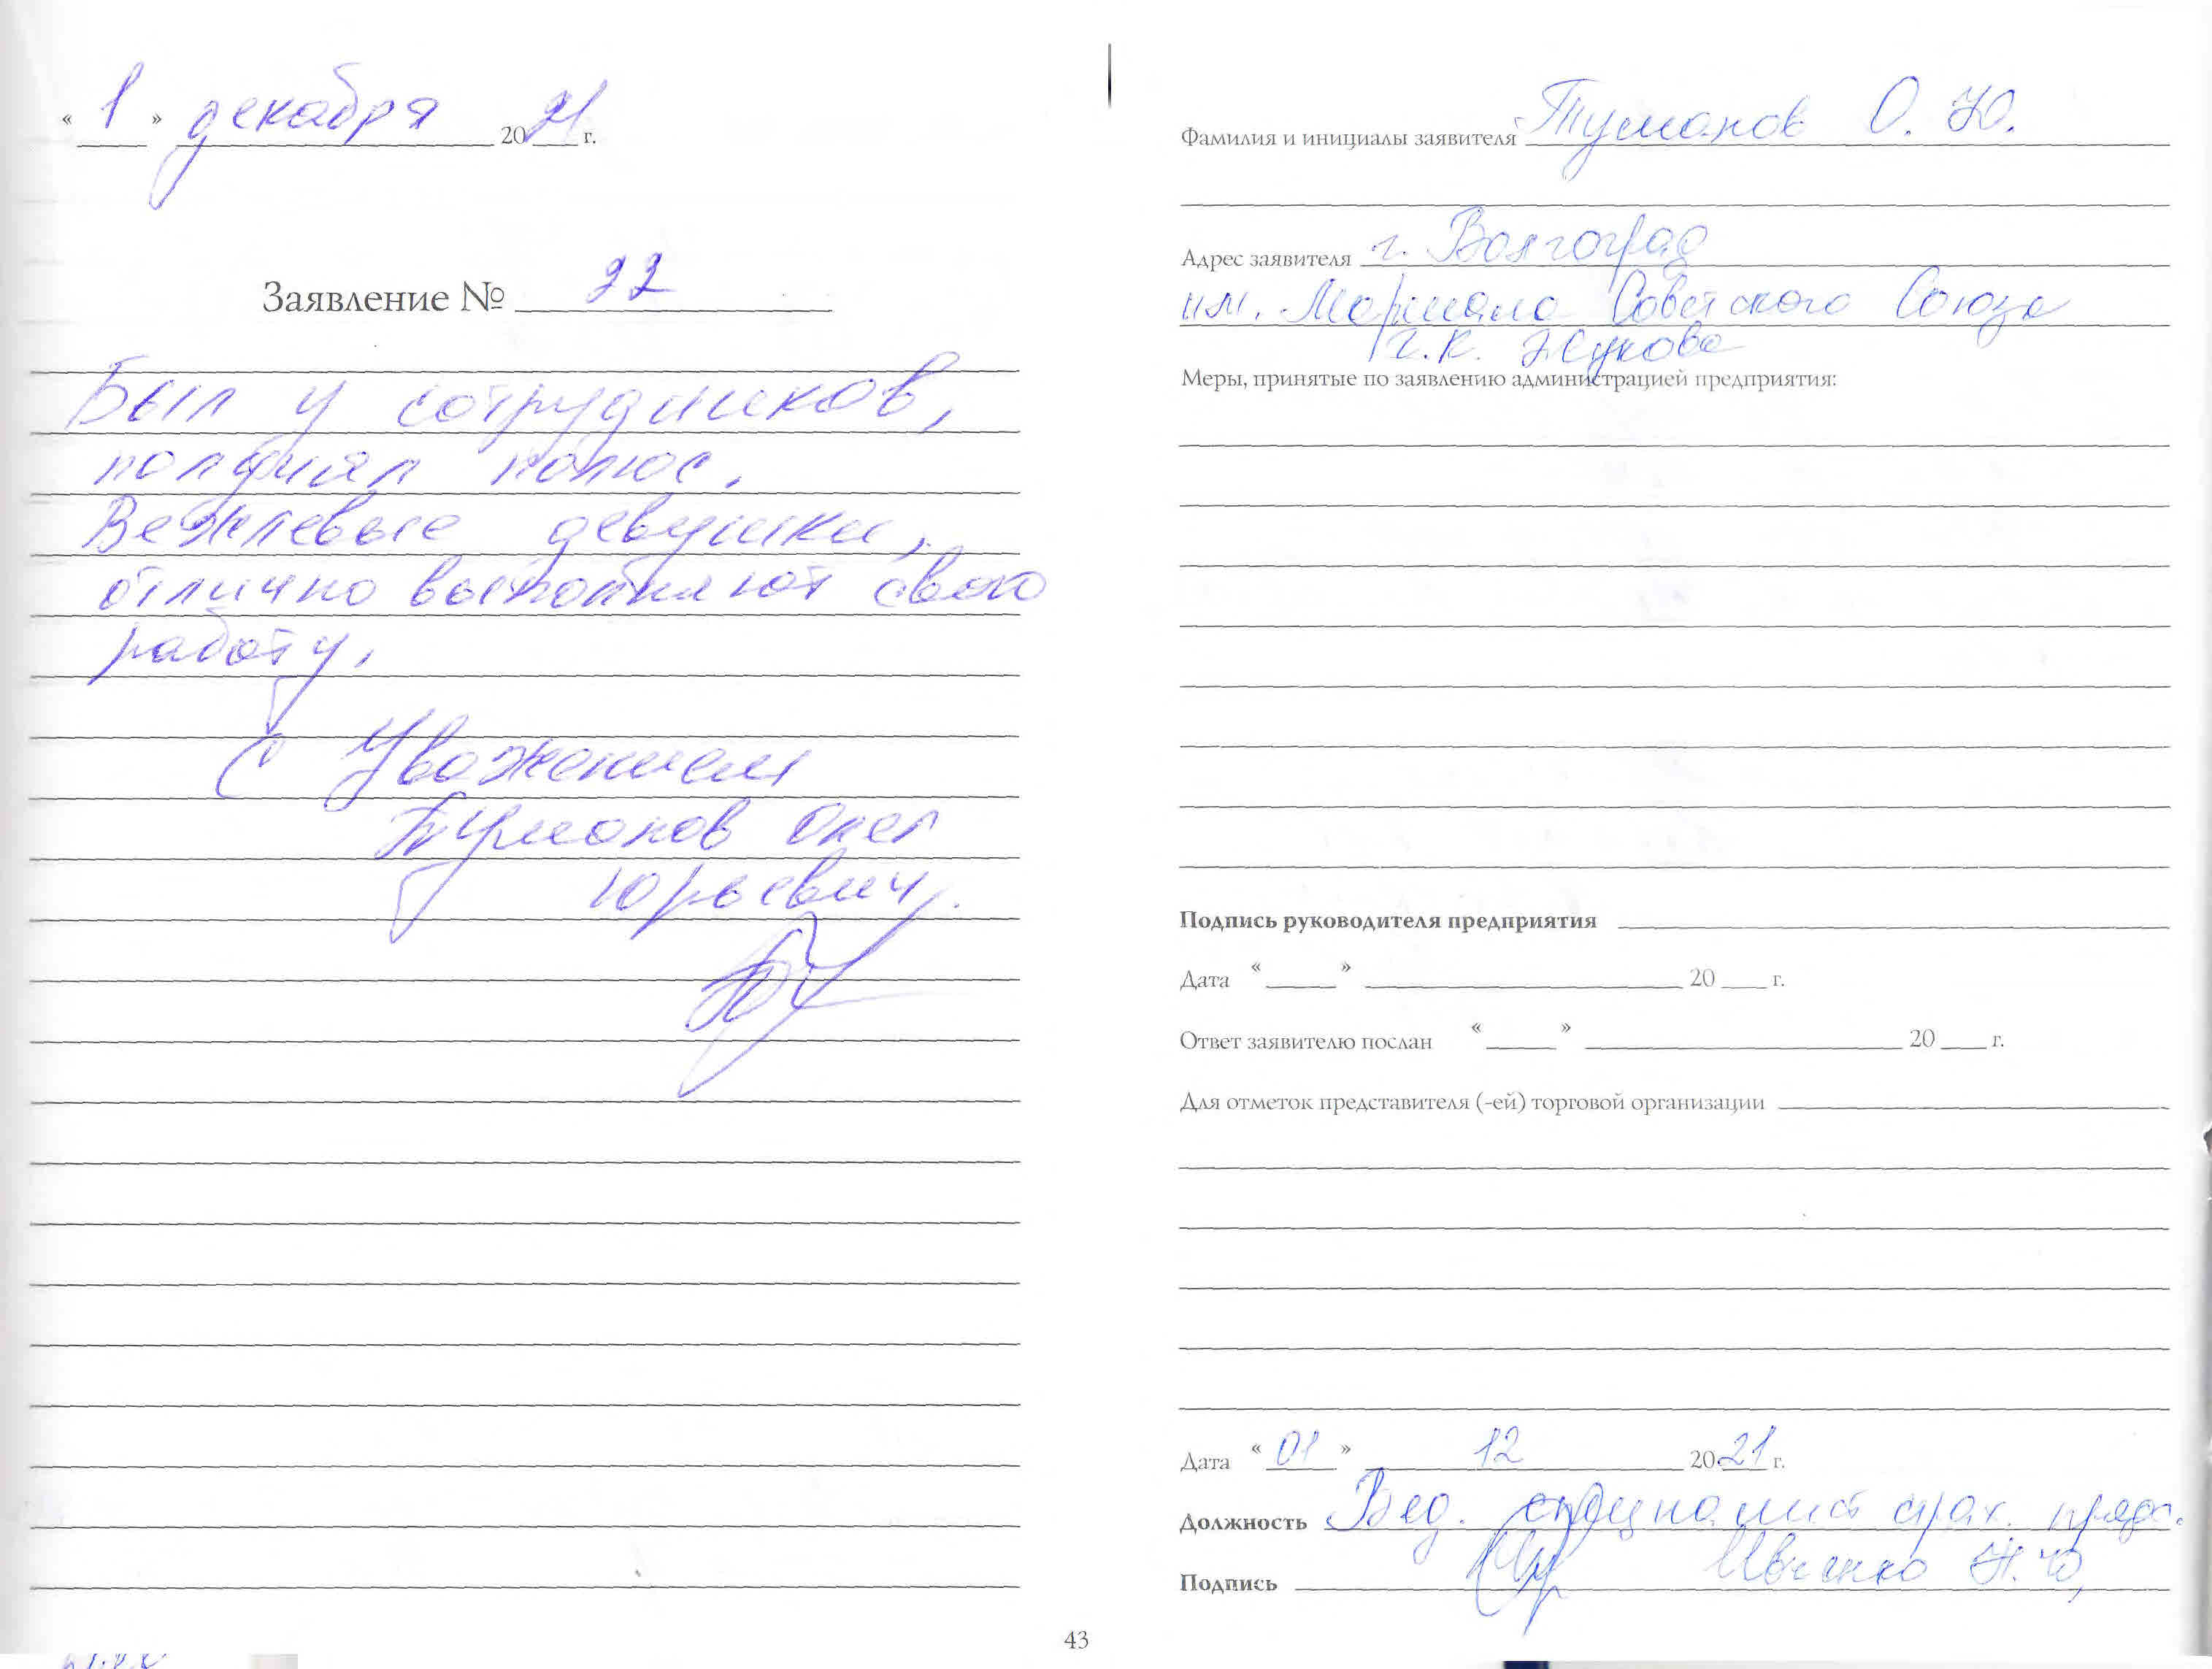 « 1 » декабря 2021 г.
Заявление № 22
Был у сотрудников,
получал полюс.
Вежлевые девушки,
отлично выполняют свою
работу.
С Уважением
Туманов Олег
Юрьевич.
Фамилия и инициалы заявителя Туманов О. Ю.
Адрес заявителя г. Волгоград
им. Маршала Советского Союза
Г.К. Жукова
Меры, принятые по заявлению администрацией предприятия:
Подпись руководителя предприятия
Дата « » 20 г.
Ответ заявителю послан « » 20 г.
Для отметок представителя (-ей) торговой организации
Дата « 01 » 12 2021 г.
Должность Вед. специалист страх. предс.
Подпись Ивченко Н.Ю.
43